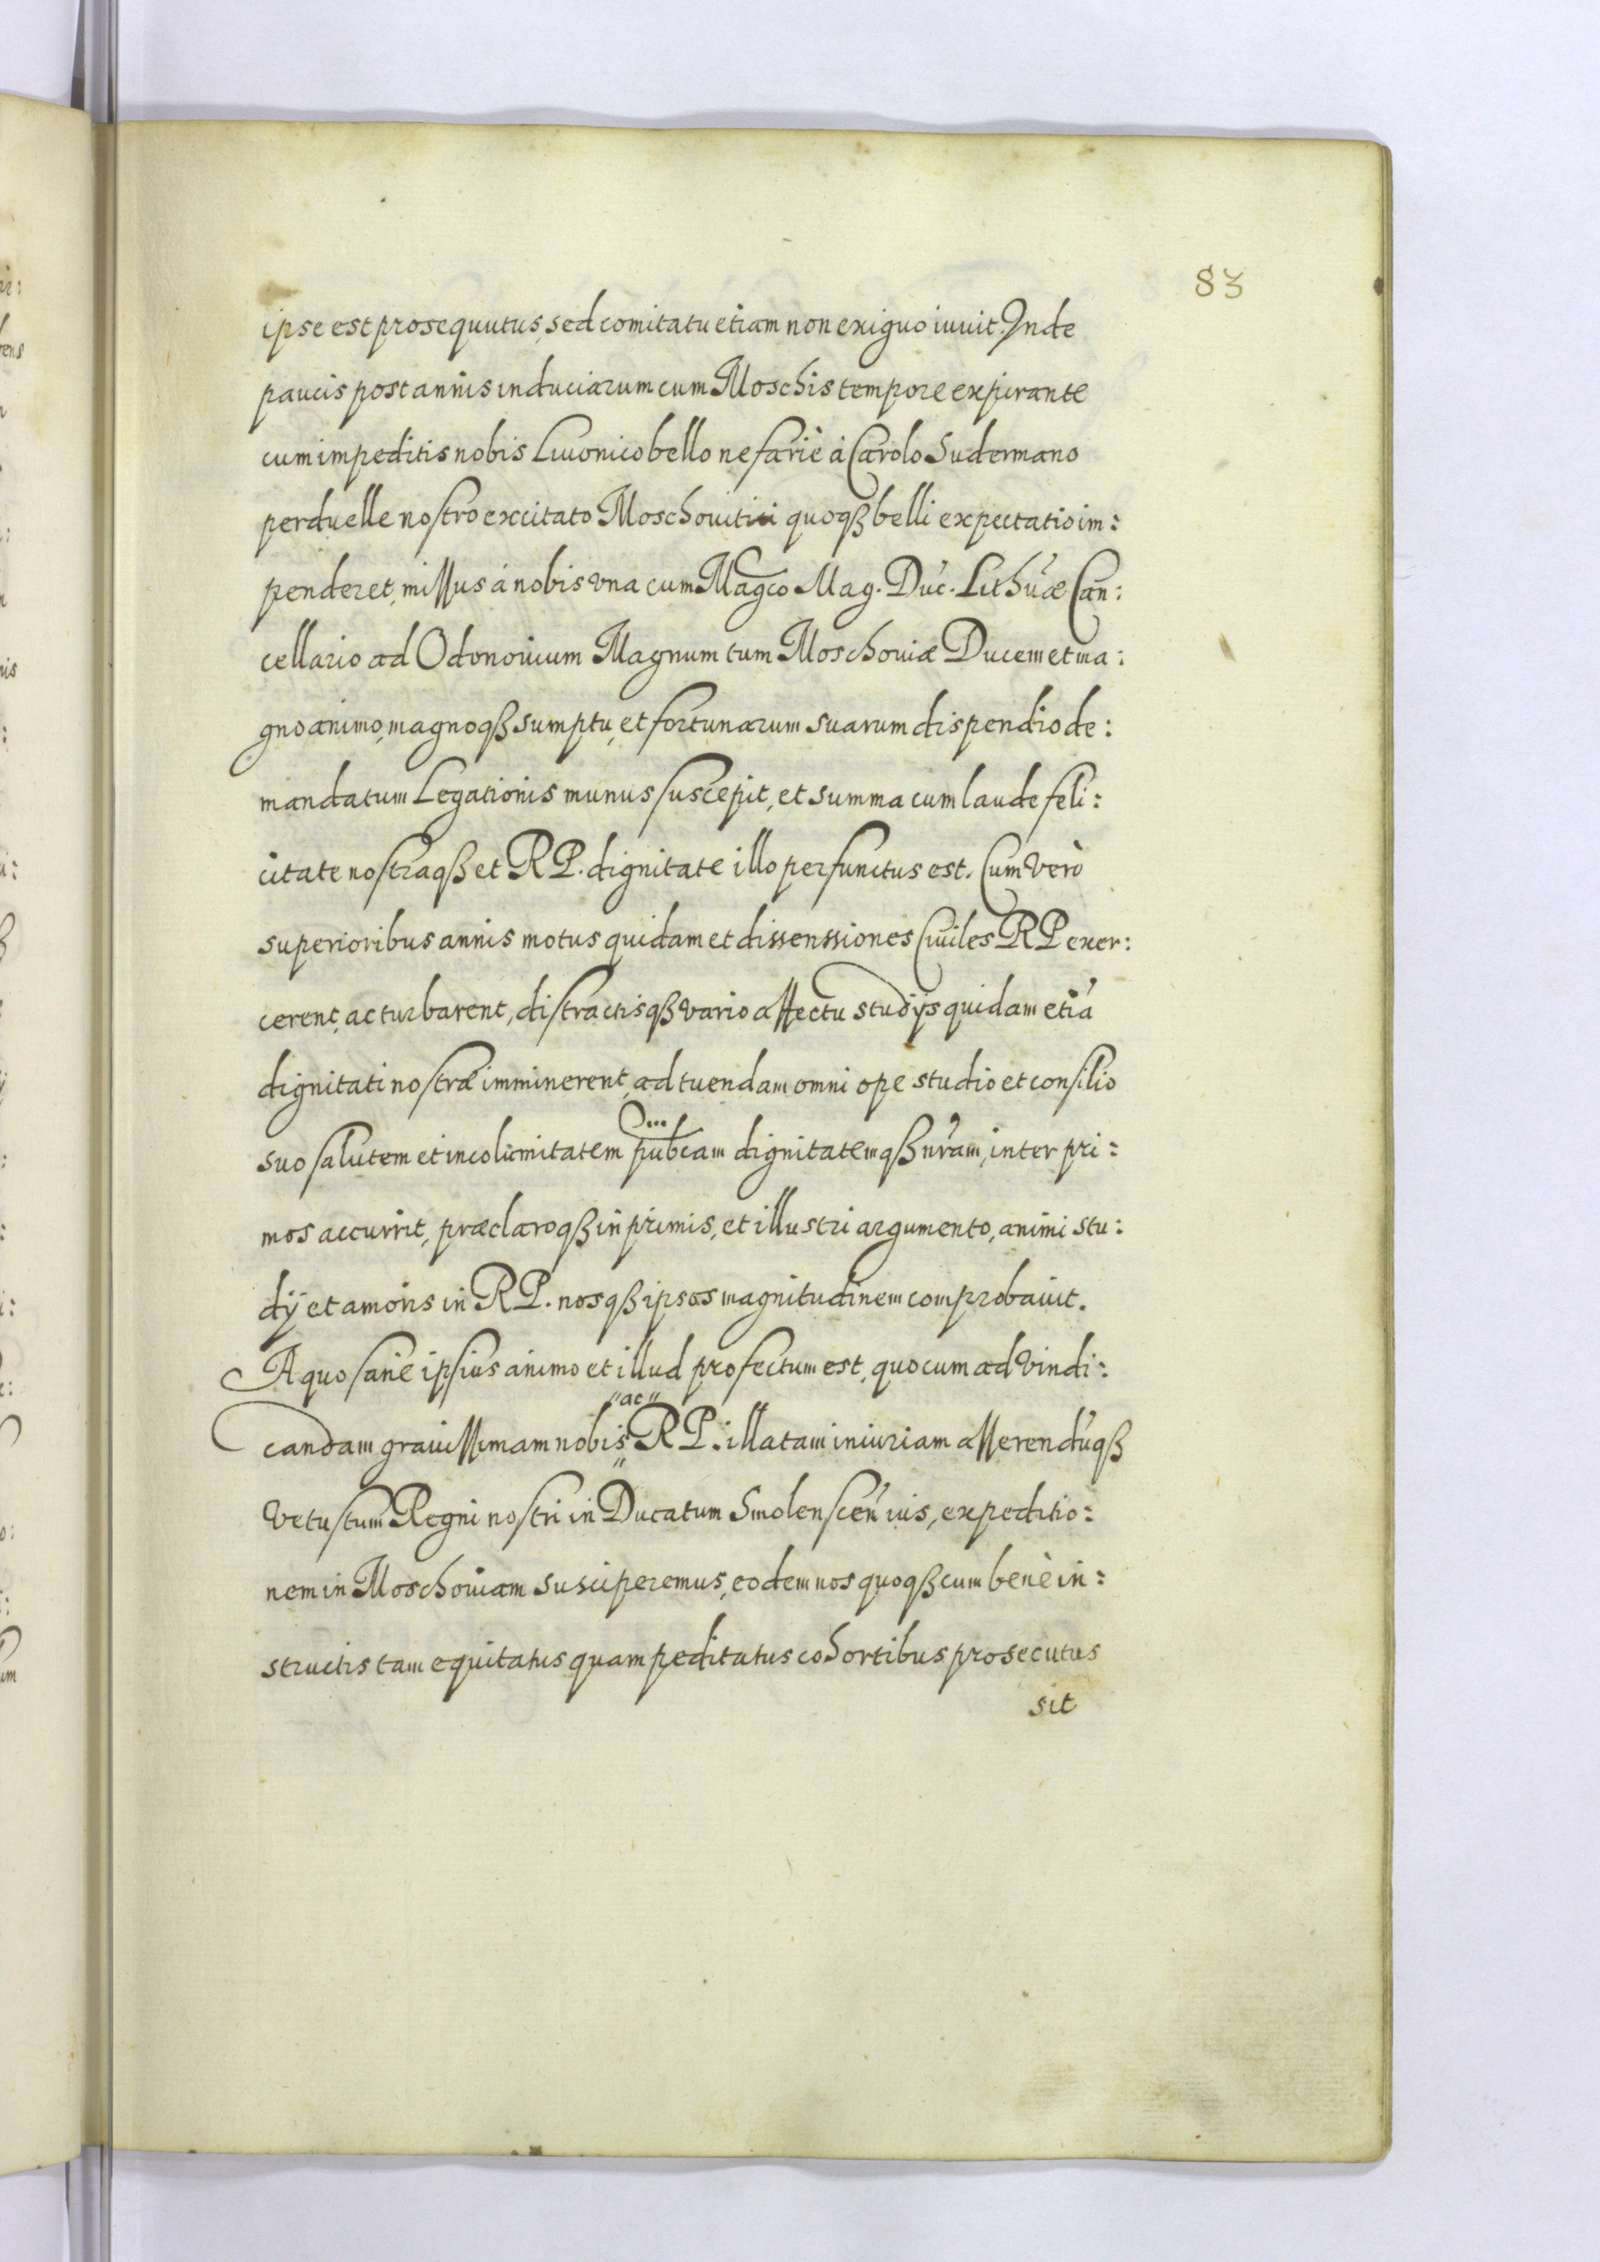 83
ipse est prosequutus, sed comitatu etiam non exiguo iuvit. Inde
paucis post annis induciarum cum Moschis tempore expirante
cum impeditis nobis Livonico bello nefariè à Carolo Sudermano
perduelle nostro excitato Moschovitici quoqß belli expectatio im:
penderet, missus á nobis vna cum Magco Mag. Duc. Lithuæ Can:
cellario ad Odonovium Magnum tum Moschoviæ Ducem et ma:
gno animo, magnoqß sumptu, et fortunarum suarum dispendio de:
mandatum Legationis munus suscepit, et summa cum laude feli:
citate nostraqß et RP. dignitate illo perfunctus est. Cum verò
superioribus annis motus quidam et dissenssiones Civiles RP exer:
cerent, ac turbarent, distractisqß vario affectu studijs quidam etiá
dignitati nostræ imminerent, ad tuendam omni ope studio et consilio
suo salutem et incolumitatem pubcam dignitatemqß nr̃am, inter pri:
mos accurrit, præclaroqß in primis, et illustri argumento, animi stu:
dij et amoris in RP. nosqß ipsos magnitudinem comprobavit.
A quo sanè ipsius animo et illud profectum est, quo cum ad vindi:
candam gravissimam nobis "ac" RP. illatam iniuriam asserendúqß
vetustum Regni nostri in Ducatum Smolenscen̄ ius, expeditio:
nem in Moschoviam susciperemus, eodem nos quoqß cum benè in:
structis tam equitatus quam peditatus cohortibus prosecutus
sit